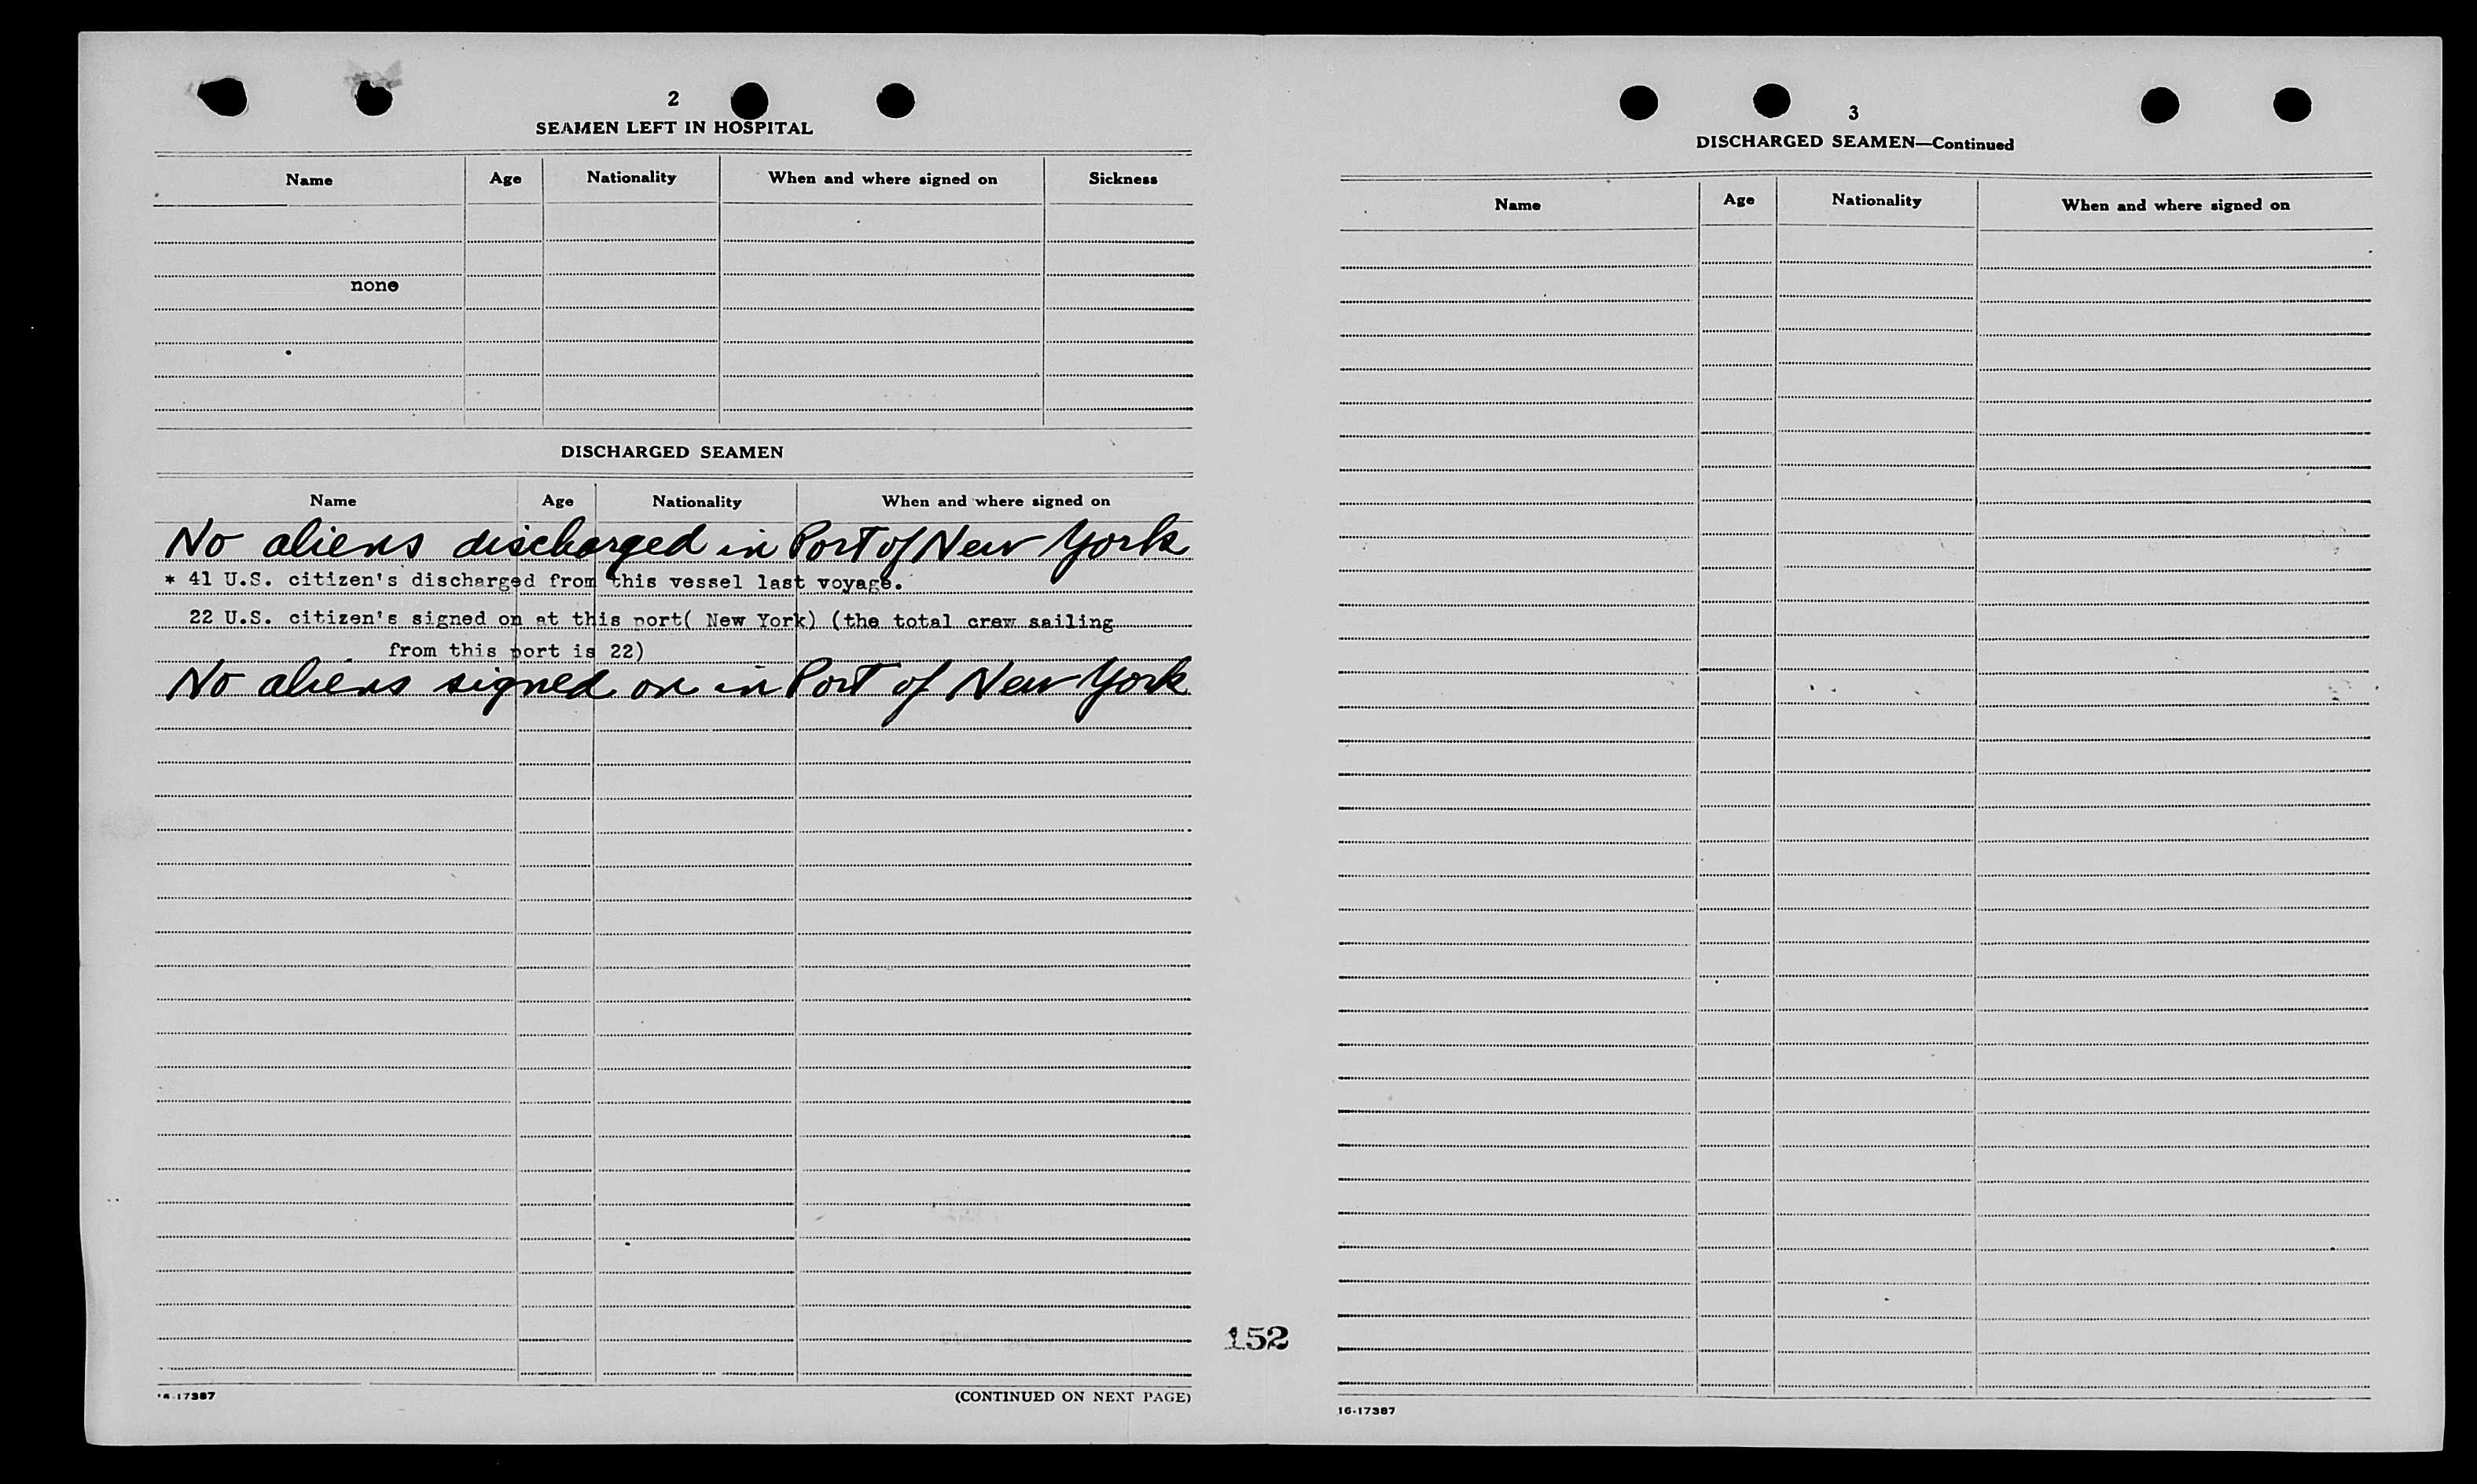 2
SEAMEN LEFT IN HOSPITAL
Name Age Nationality When and where signed on Sickness
none
DISCHARGED SEAMEN
Name Age Nationality When and where signed on
No aliens discharged in Port of New York
* 41 U.S. citizen's discharged from this vessel last voyage.
22 U.S. citizen's signed on at this port( New York) (the total crew sailing
from this port is 22)
No aliens signed on in Port of New York
16-17387
(CONTINUED ON NEXT PAGE)
152
3
DISCHARGED SEAMEN—Continued
Name Age Nationality When and where signed on
16-17387